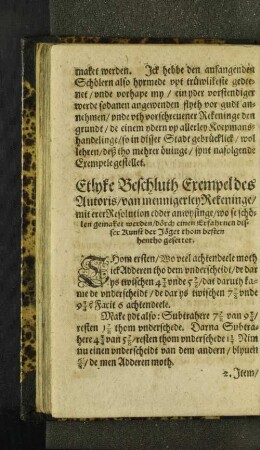 maket werden. Jck hebbe den anfangenden
Schölern also hyrmede vpt trüwlikeste gedee-
net / vnde vorhape my / ein yder vorstendiger
werde sodanen angewenden flyth vor gudt an-
nehmen / vnde vth vorschreuener Rekeninge den
grundt / de einem ydern yp allerley Koepmans-
handelinge / so in disser Stadt gebrücklick / wol
lehren / deß tho mehrer öuinge / synt nafolgende
Exempele gestellet.
Etlyke Beschluth Exempel des
Autoris / van mennigerley Rekeninge /
mit erer Resolution edder anwysinge / wo se schö-
len gemaket werden / dörch einen Erfahrnen dis-
ser Kunst der Jöget thom besten
hentho gesettet.
Thom ersten / Wo veel achtendeele moth
ick Adderen tho dem vnderscheidt / de dar
ys twischen 4 3/4 vnde 5 7/8 / dat daruth ka-
me de vnderscheidt / de dar ys twischen 7 5/8 vnde
9 3/8 Facit 5 achtendeele.
Make ydt also: Subtrahere 7 5/8 van 9 3/8 /
resten 1 3/4 thom vnderschede. Darna Subtra-
here 4 3/4 van 5 7/8 / resten thom vnderschede 1 1/8 Nim
nu einen vnderscheidt van dem andern / blyuen
5/8 / de men Adderen moth.
2. Item /